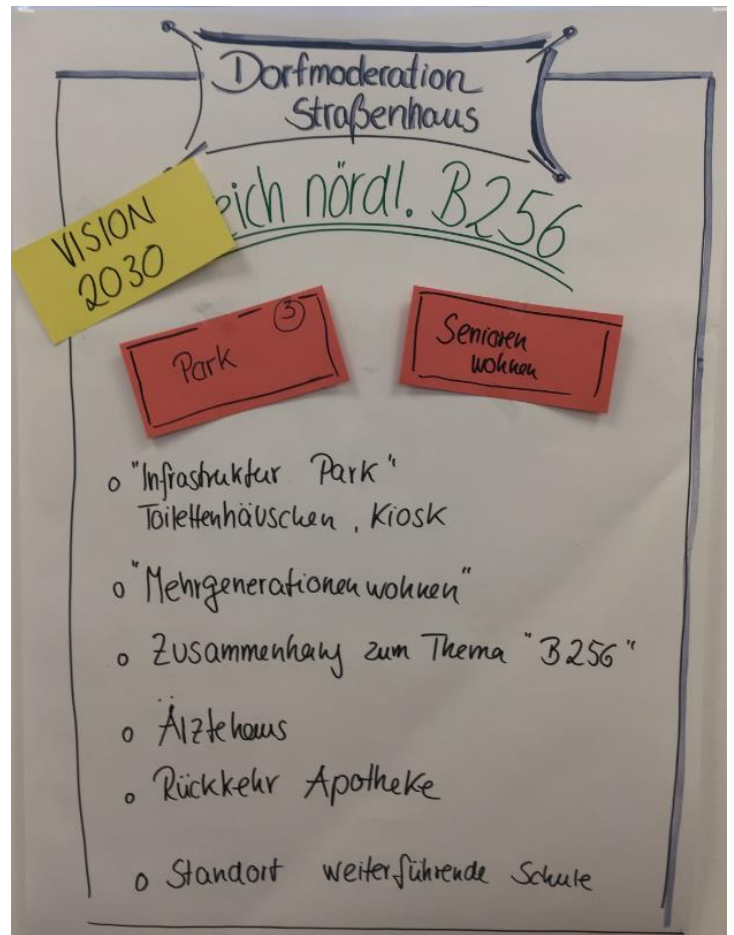 Dorfmoderation
Straßenhaus
eich nördl. B256
VISION
2030
Park
3
Senioren
wohnen
o "Infrastruktur Park"
Toilettenhäuschen, Kiosk
o "Mehrgenerationenwohnen"
o Zusammenhang zum Thema "B256"
o Ärztehaus
o Rückkehr Apotheke
o Standort weiterführende Schule